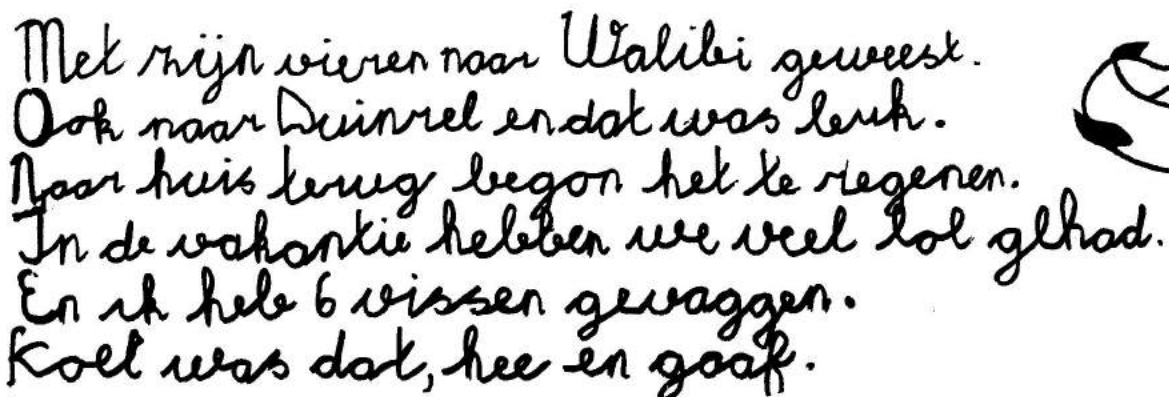 Met zijn vieren naar Walibi geweest.
Ook naar Duinrel en dat was leuk.
Naar huis terug begon het te regenen.
In de vakantie hebben we veel lol glhad.
En ik heb 6 vissen gevaggen.
Koel was dat, hee en gaaf.